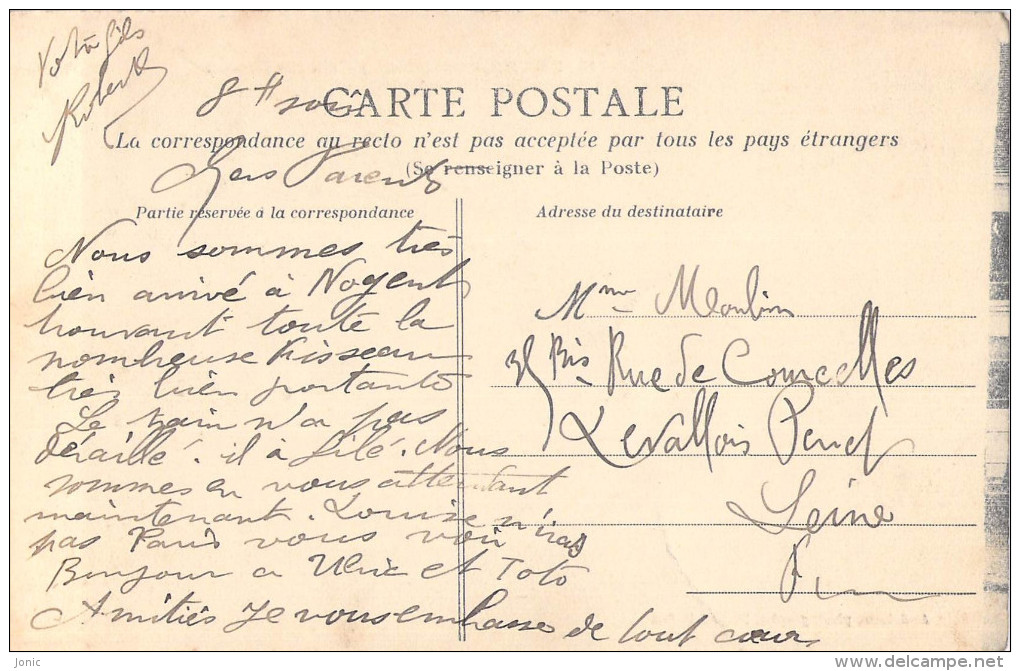 Votre fils
Robert
8 H soir
CARTE POSTALE
La correspondance au recto n'est pas acceptée par tous les pays étrangers
(Se renseigner à la Poste)
Chers Parents
Partie réservée à la correspondance
Nous sommes très
bien arrivé à Nogent
trouvant toute la
nombreuse
très bien portants
Le train n'a pas
déraillé. il à filé. Nous
sommes en vous attendant
maintenant. Louise n'iras
pas Paris vous voir
Bonjour a Ulric et Toto
Amitiés Je vous embrasse de tout cœur
Adresse du destinataire
Mme Moulin
35 Bis Rue de Courcelles
Levallois Perret
Seine
Jonic
www.delcampe.net